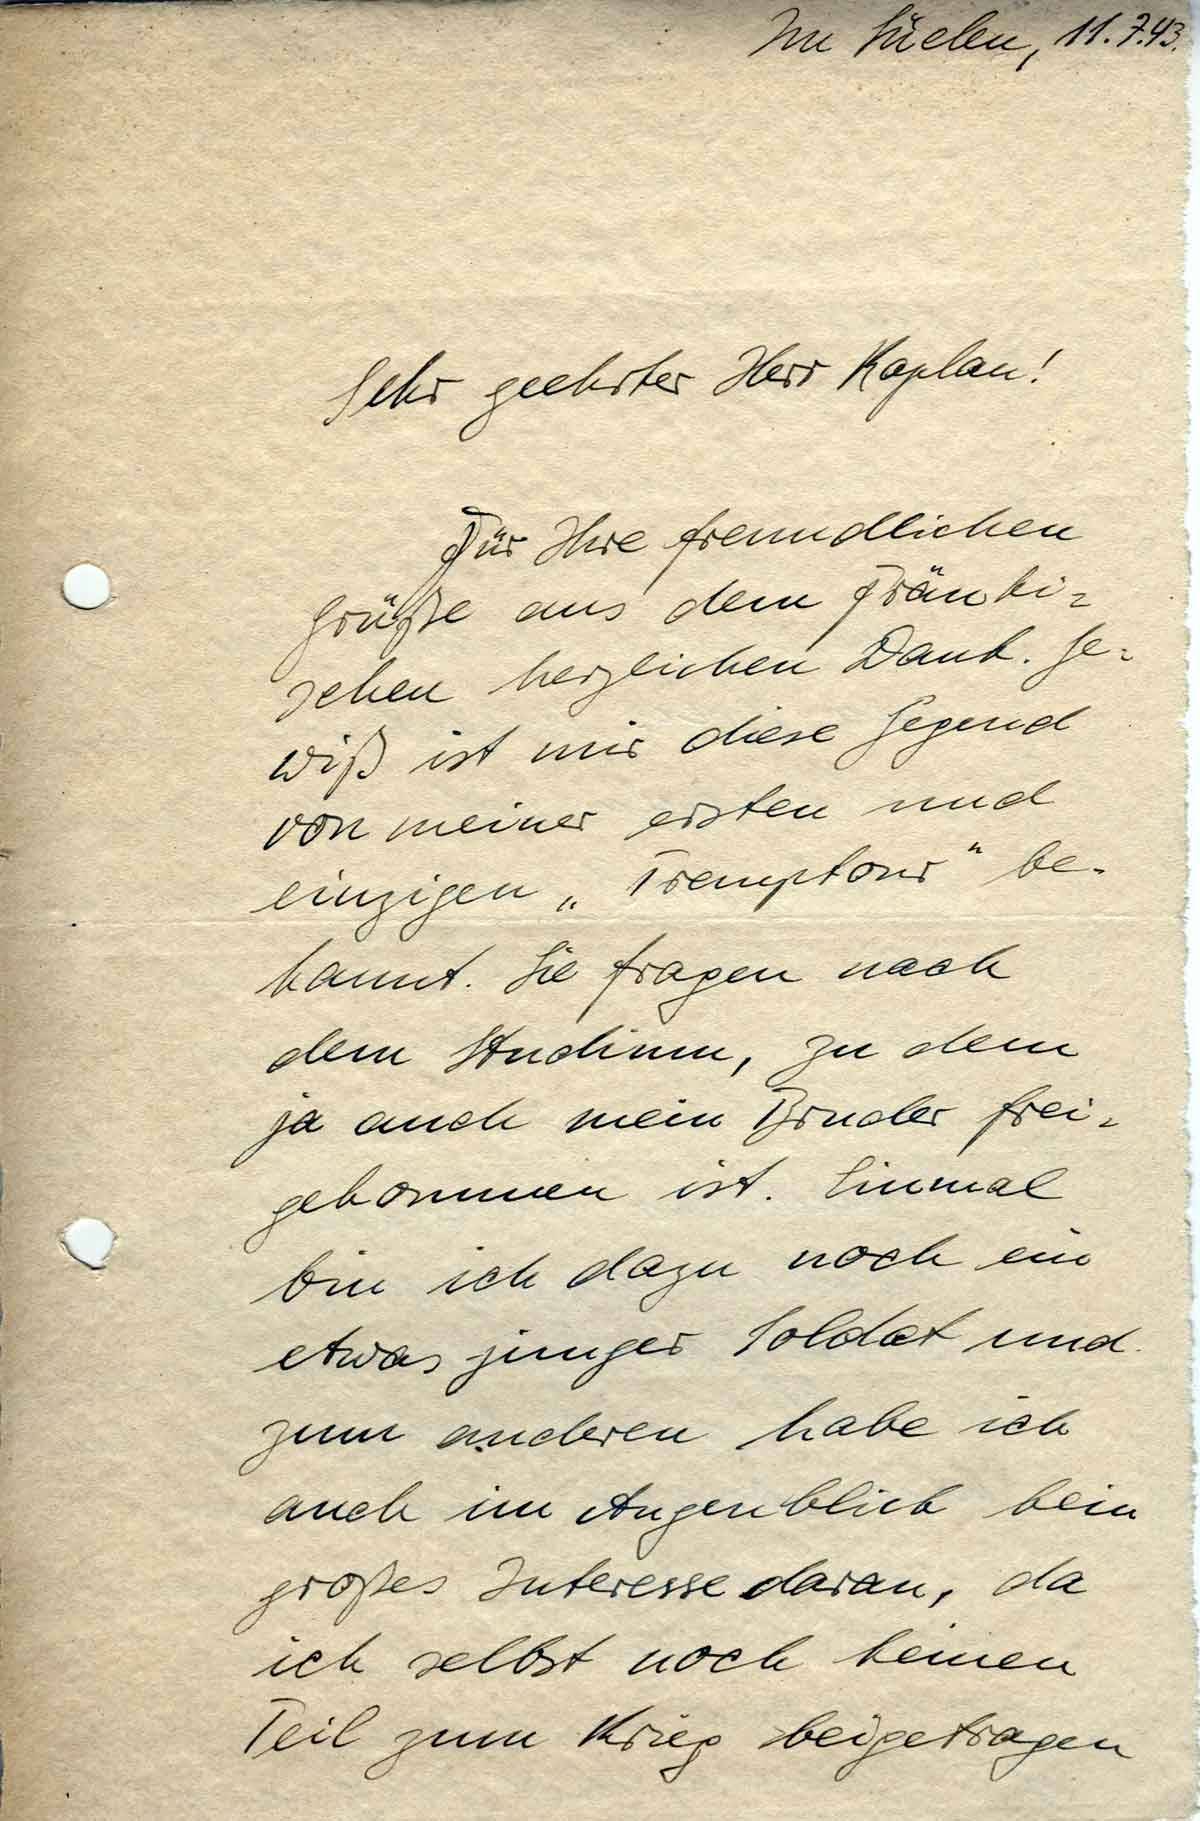 Im Süden, 11.7.43.
Sehr geehrter Herr Kaplan!
Für Ihre freundlichen
Grüße aus dem Fränki-
schen herzlichen Dank. Ge-
wiß ist mir diese Gegend
von meiner ersten und
einzigen „Tremptour" be-
kannt. Sie fragen nach
dem Studium, zu dem
ja auch mein Bruder frei-
gekommen ist. Einmal
bin ich dazu noch ein
etwas junger Soldat und
zum anderen habe ich
auch im Augenblick kein
großes Interesse daran, da
ich selbst noch keinen
Teil zum Krieg beigetragen